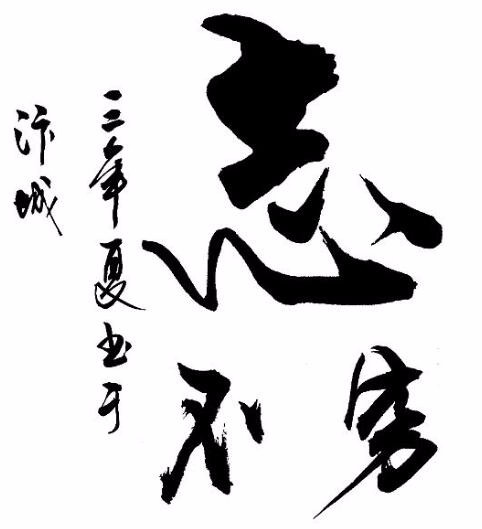 志
不穷
三年夏书于
汴城